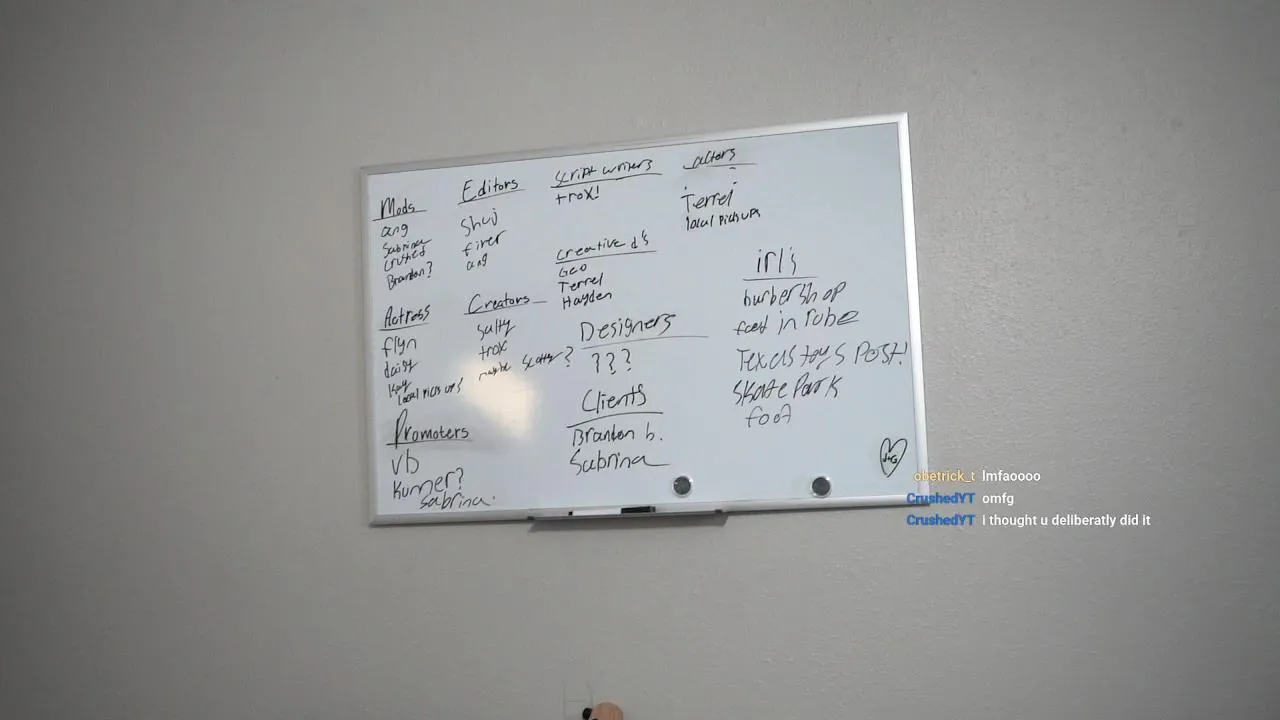 Mods
ang
Sabrina
crushed
Brandon?
Actress
flyn
daisy
kay
local pick ups
Promoters
vb
Kunner?
Sabrina.
Editors
Shuj
firer
ang
Creators
salty
trox
maybe scotty?
script writers
trox!
creative d's
Geo
Terrel
Hayden
Designers
???
Clients
Brandon b.
Sabrina
actors
Terrel
local pickups
irl's
barbershop
food in robe
Texas toys Post!
Skate Park
food
J+G
obetrick_t lmfaoooo
CrushedYT omfg
CrushedYT I thought u deliberatly did it